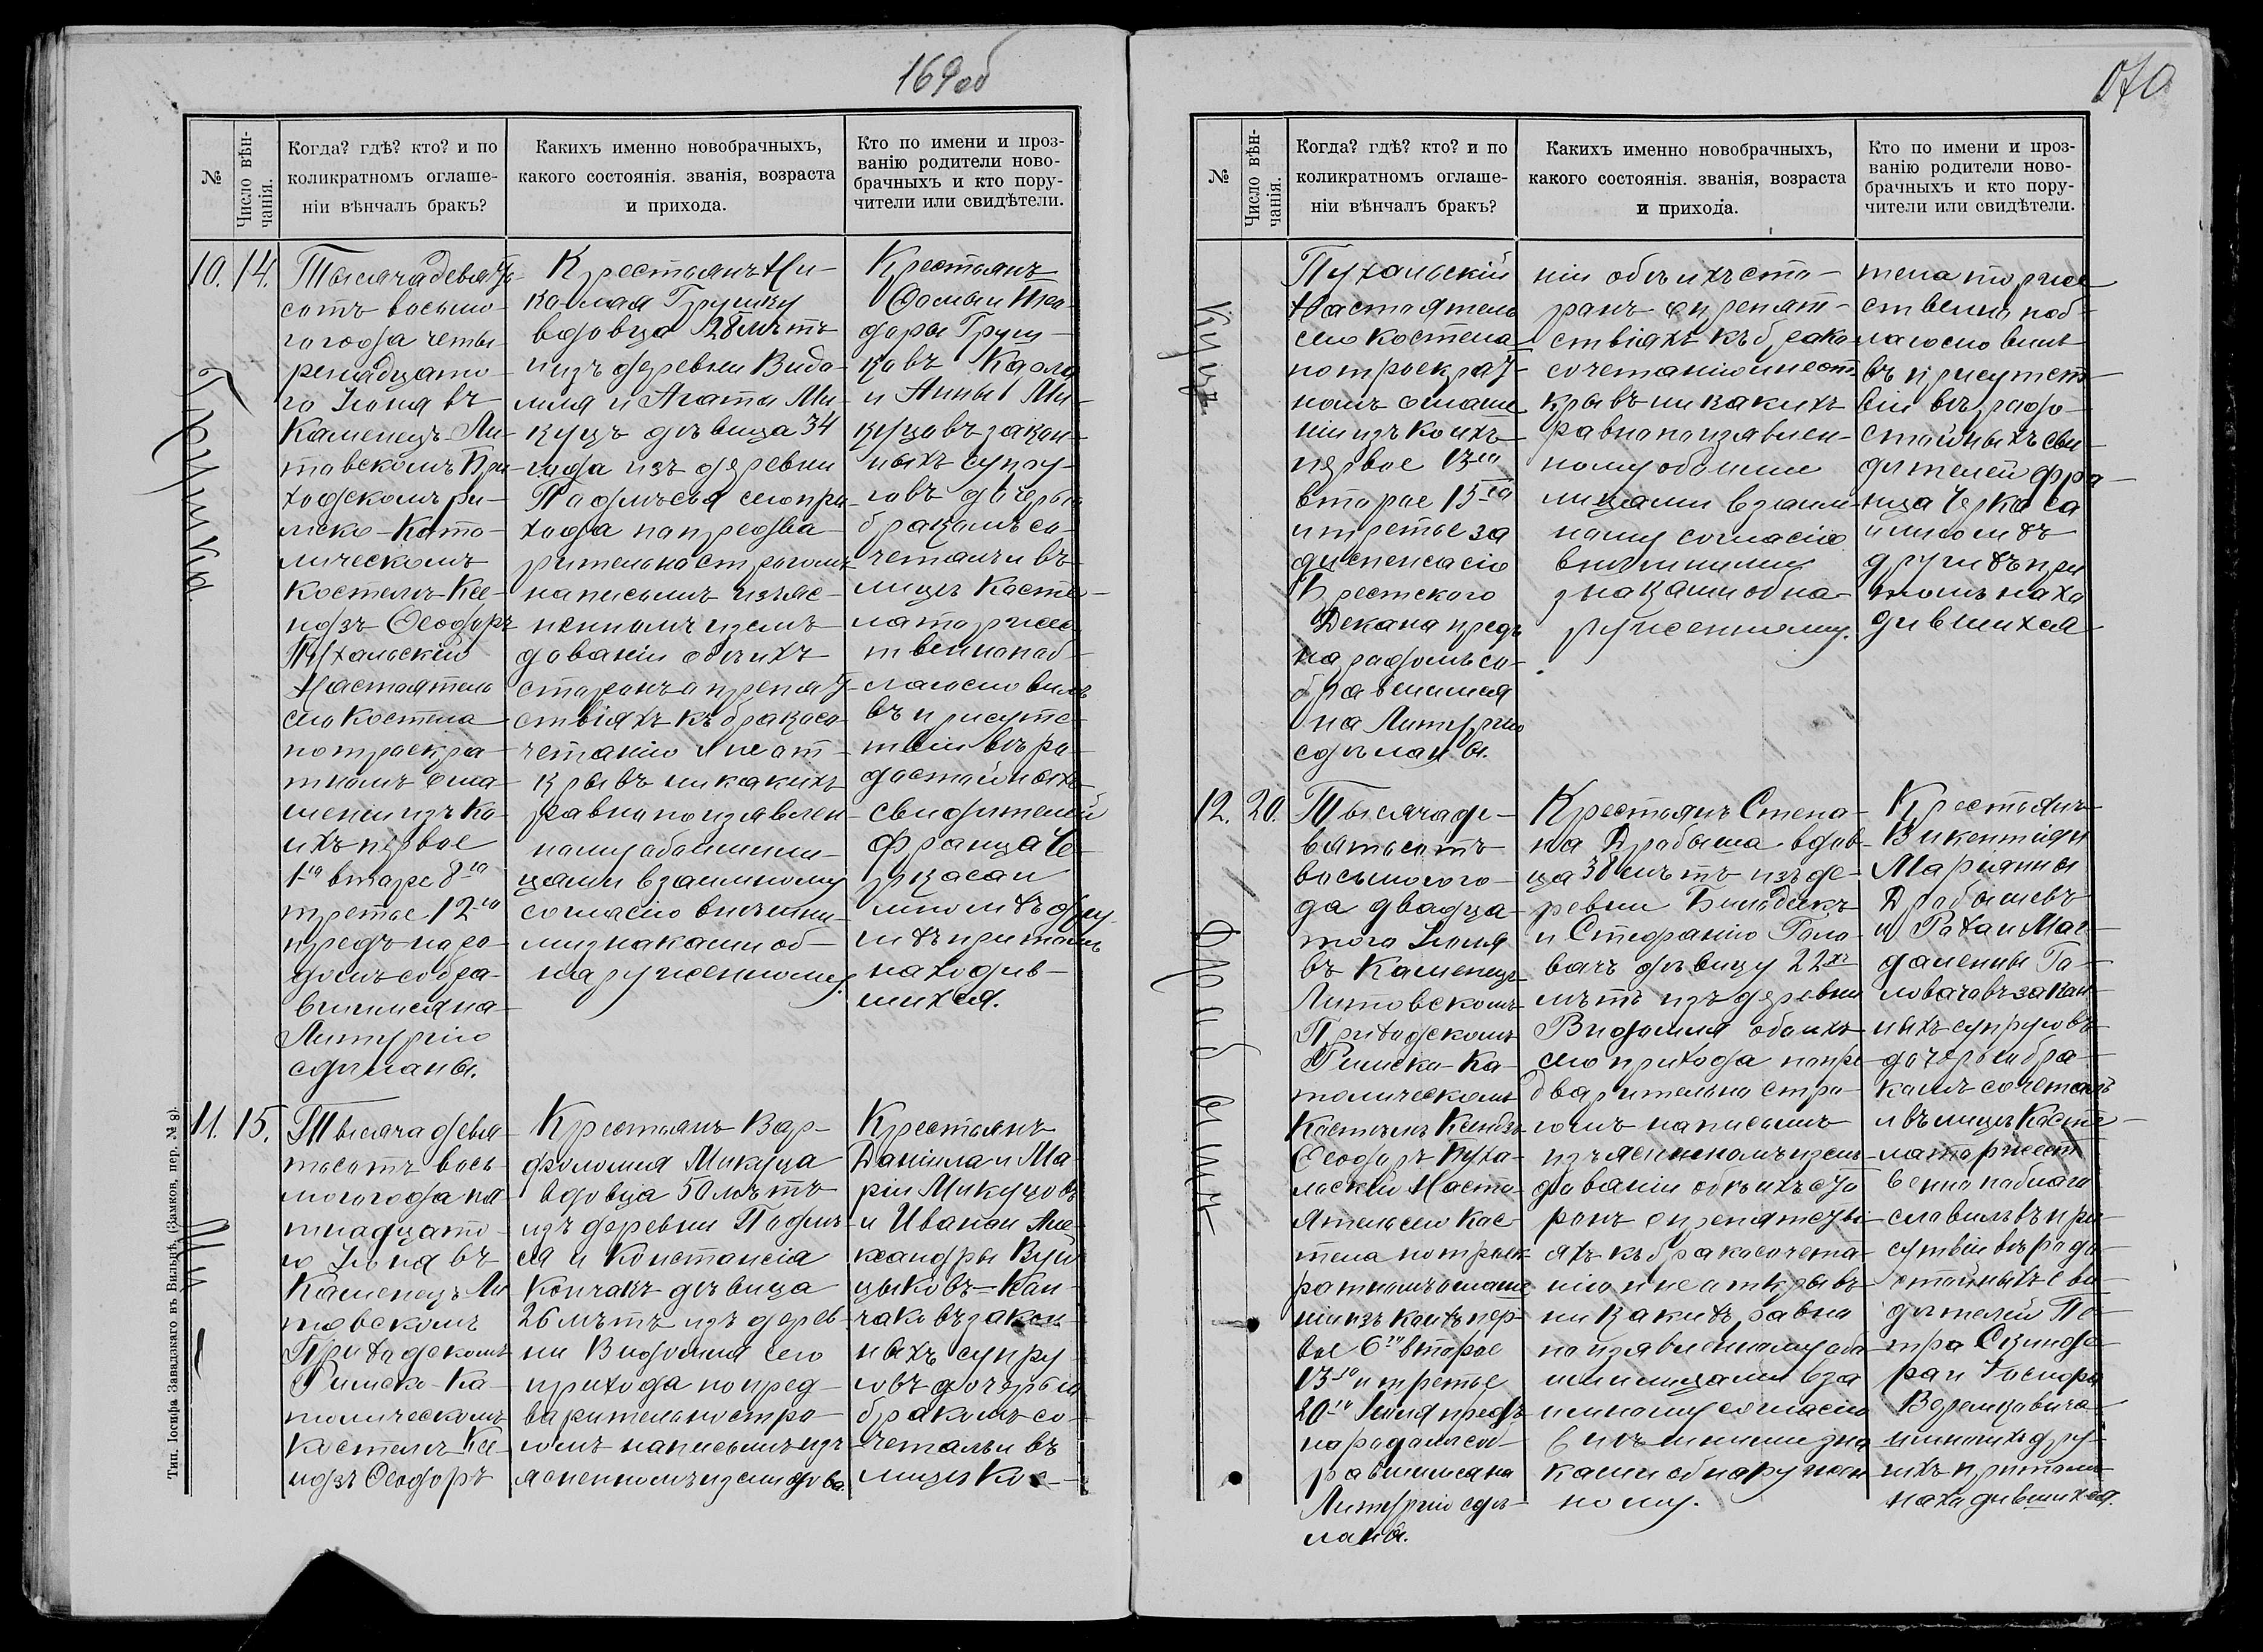 169об
№
Число вѣнчанія.
Когда? гдѣ? кто? и по
коликратномъ оглаше-
ніи вѣнчалъ бракъ?
Какихъ именно новобрачныхъ,
какого состоянія. званія, возраста
и прихода.
Кто по имени и проз-
ванію родители ново-
брачныхъ и кто пору-
чители или свидѣтели.
10.
14.
Грушка.
Тысяча девять-
сотъ восьмо-
го года четы-
ренадцато-
го Іюня въ
Каменецъ-Ли-
товскомъ При-
ходскомъ ри-
мско-Като-
лическомъ
Костелѣ Ксе-
ндзъ Ѳеодоръ
Пухальскій
Настоятель
сего Костела
по троекра-
тномъ огла-
шеніи изъ ко-
ихъ первое
1-го второе 8-го
третье 12-го
предъ наро-
домъ собра-
вшимся на
Литургію
сдѣланы.
Крестьянъ Ни-
колая Грушку
вдовца 28 лѣтъ
изъ деревни Видо-
мля и Агата Ми-
куцъ дѣвица 34
года изъ деревни
Подлѣсья сего при-
хода по предва-
рительно строгомъ
на письмѣ изъяс-
ненномъ изслѣ-
дованіи обѣихъ
сторонъ о препят-
ствіяхъ къ бракосо-
четанію и не от-
крывъ никакихъ
равно по изъявлен-
ному обоими ли-
цами взаимному
согласію внѣшни-
ми знаками об-
наруженному.
Крестьянъ
Ѳомы и Тео-
доры Груш-
ковъ Карла
и Анны Ми-
куцовъ закон-
ныхъ супру-
говъ дочерью
бракомъ со-
четалъ и въ
лицѣ Косте-
ла торжес-
твенно наб-
лагословилъ
въ присутс-
твіи вѣро-
достойныхъ
свидѣтелей
Франца Че-
ркаса и
многихъ дру-
гихъ при томъ
находив-
шихся.
11.
15.
Ми-
Тысяча девя-
тьсотъ вось-
мого года пя-
тнадцато-
го Іюня въ
Каменецъ-Ли-
товскомъ
Приходскомъ
Римско-Ка-
толическомъ
Костелѣ Ксе-
ндзъ Ѳеодоръ
Крестьянъ Вар-
фоломея Микуца
вдовца 50 лѣтъ
изъ деревни Подлѣ-
ся и Констансія
Кончакъ дѣвица
26 лѣтъ изъ дерев-
ни Видомля сего
прихода по пред-
варительно стро-
гомъ на письмѣ изъ-
ясненномъ изслѣдова-
Крестьянъ
Даніила и Ма-
ріи Микуцовъ
и Ивана и Але-
ксандры Вуй-
циковъ-Кон-
чаковъ закон-
ныхъ супру-
говъ дочерью
бракомъ со-
четалъ и въ
лицѣ Кос-
Тип. Іосифа Завадзкаго въ Вильнѣ. (Замков. пер. № 8).
170
№
Число вѣнчанія.
Когда? гдѣ? кто? и по
коликратномъ оглаше-
ніи вѣнчалъ бракъ?
Какихъ именно новобрачныхъ,
какого состоянія. званія, возраста
и прихода.
Кто по имени и проз-
ванію родители ново-
брачныхъ и кто пору-
чители или свидѣтели.
куцъ
Пухальскій
Настоятель
сего Костела
по троекрат-
номъ оглаше-
ніи изъ коихъ
первое 13-го
второе 15-го
и третье за
диспенсаціею
Брестскаго
Декана предъ
народомъ со-
бравшимся
на Литургію
сдѣланы.
ніи обѣихъ сто-
ронъ о препят-
ствіяхъ къ брако-
сочетанію и не от-
крывъ никакихъ
равно по изъявлен-
ному обоими
лицами взаим-
ному согласію
внѣшними
знаками обна-
руженному.
тела торже-
ственно наб-
лагословилъ
въ присутст-
віи вѣродо-
стойныхъ сви-
дѣтелей Фра-
нца Черкаса
и многихъ
другихъ при
томъ нахо-
дившихся
12.
20.
Дробышъ
Тысяча де-
вятьсотъ
восьмого го-
да двадца-
того Іюня
въ Каменецъ-
Литовскомъ
Приходскомъ
Римско-Ка-
толическомъ
Костелѣ Ксендзъ
Ѳеодоръ Пуха-
льскій Насто-
ятель сего Кос-
тела по троек-
ратномъ оглаше-
ніи изъ коихъ пер-
вое 6-го второе
13-го и третье
20-го Іюня предъ
народомъ соб-
равшимся на
Литургію сдѣ-
ланы.
Крестьянъ Степа-
на Дробыша вдов-
ца 38 лѣтъ изъ де-
ревни Бильдейкъ
и Стефанію Голо-
вачъ дѣвицу 22хъ
лѣтъ изъ деревни
Видомля обоихъ
сего прихода по пре-
дварительно стро-
гомъ на письмѣ
изъясненномъ изслѣ-
дованіи обѣихъ сто-
ронъ о препятстві-
яхъ къ бракосочета-
нію и не открывъ
никакихъ равно
по изъявленному обо-
ими лицами вза-
имному согласію
внѣшними зна-
ками обнаружен-
ному.
Крестьянъ
Викентія и
Маріанны
Дробышевъ
и Роха и Маг-
далены Го-
ловачовъ закон-
ныхъ супруговъ
дочерью бра-
комъ сочеталъ
и въ лицѣ Косте-
ла торжест-
венно наблаго-
словилъ въ при-
сутствіи вѣродо-
стойныхъ сви-
дѣтелей Пе-
тра
и
и многихъ дру-
гихъ при томъ
находившихся.